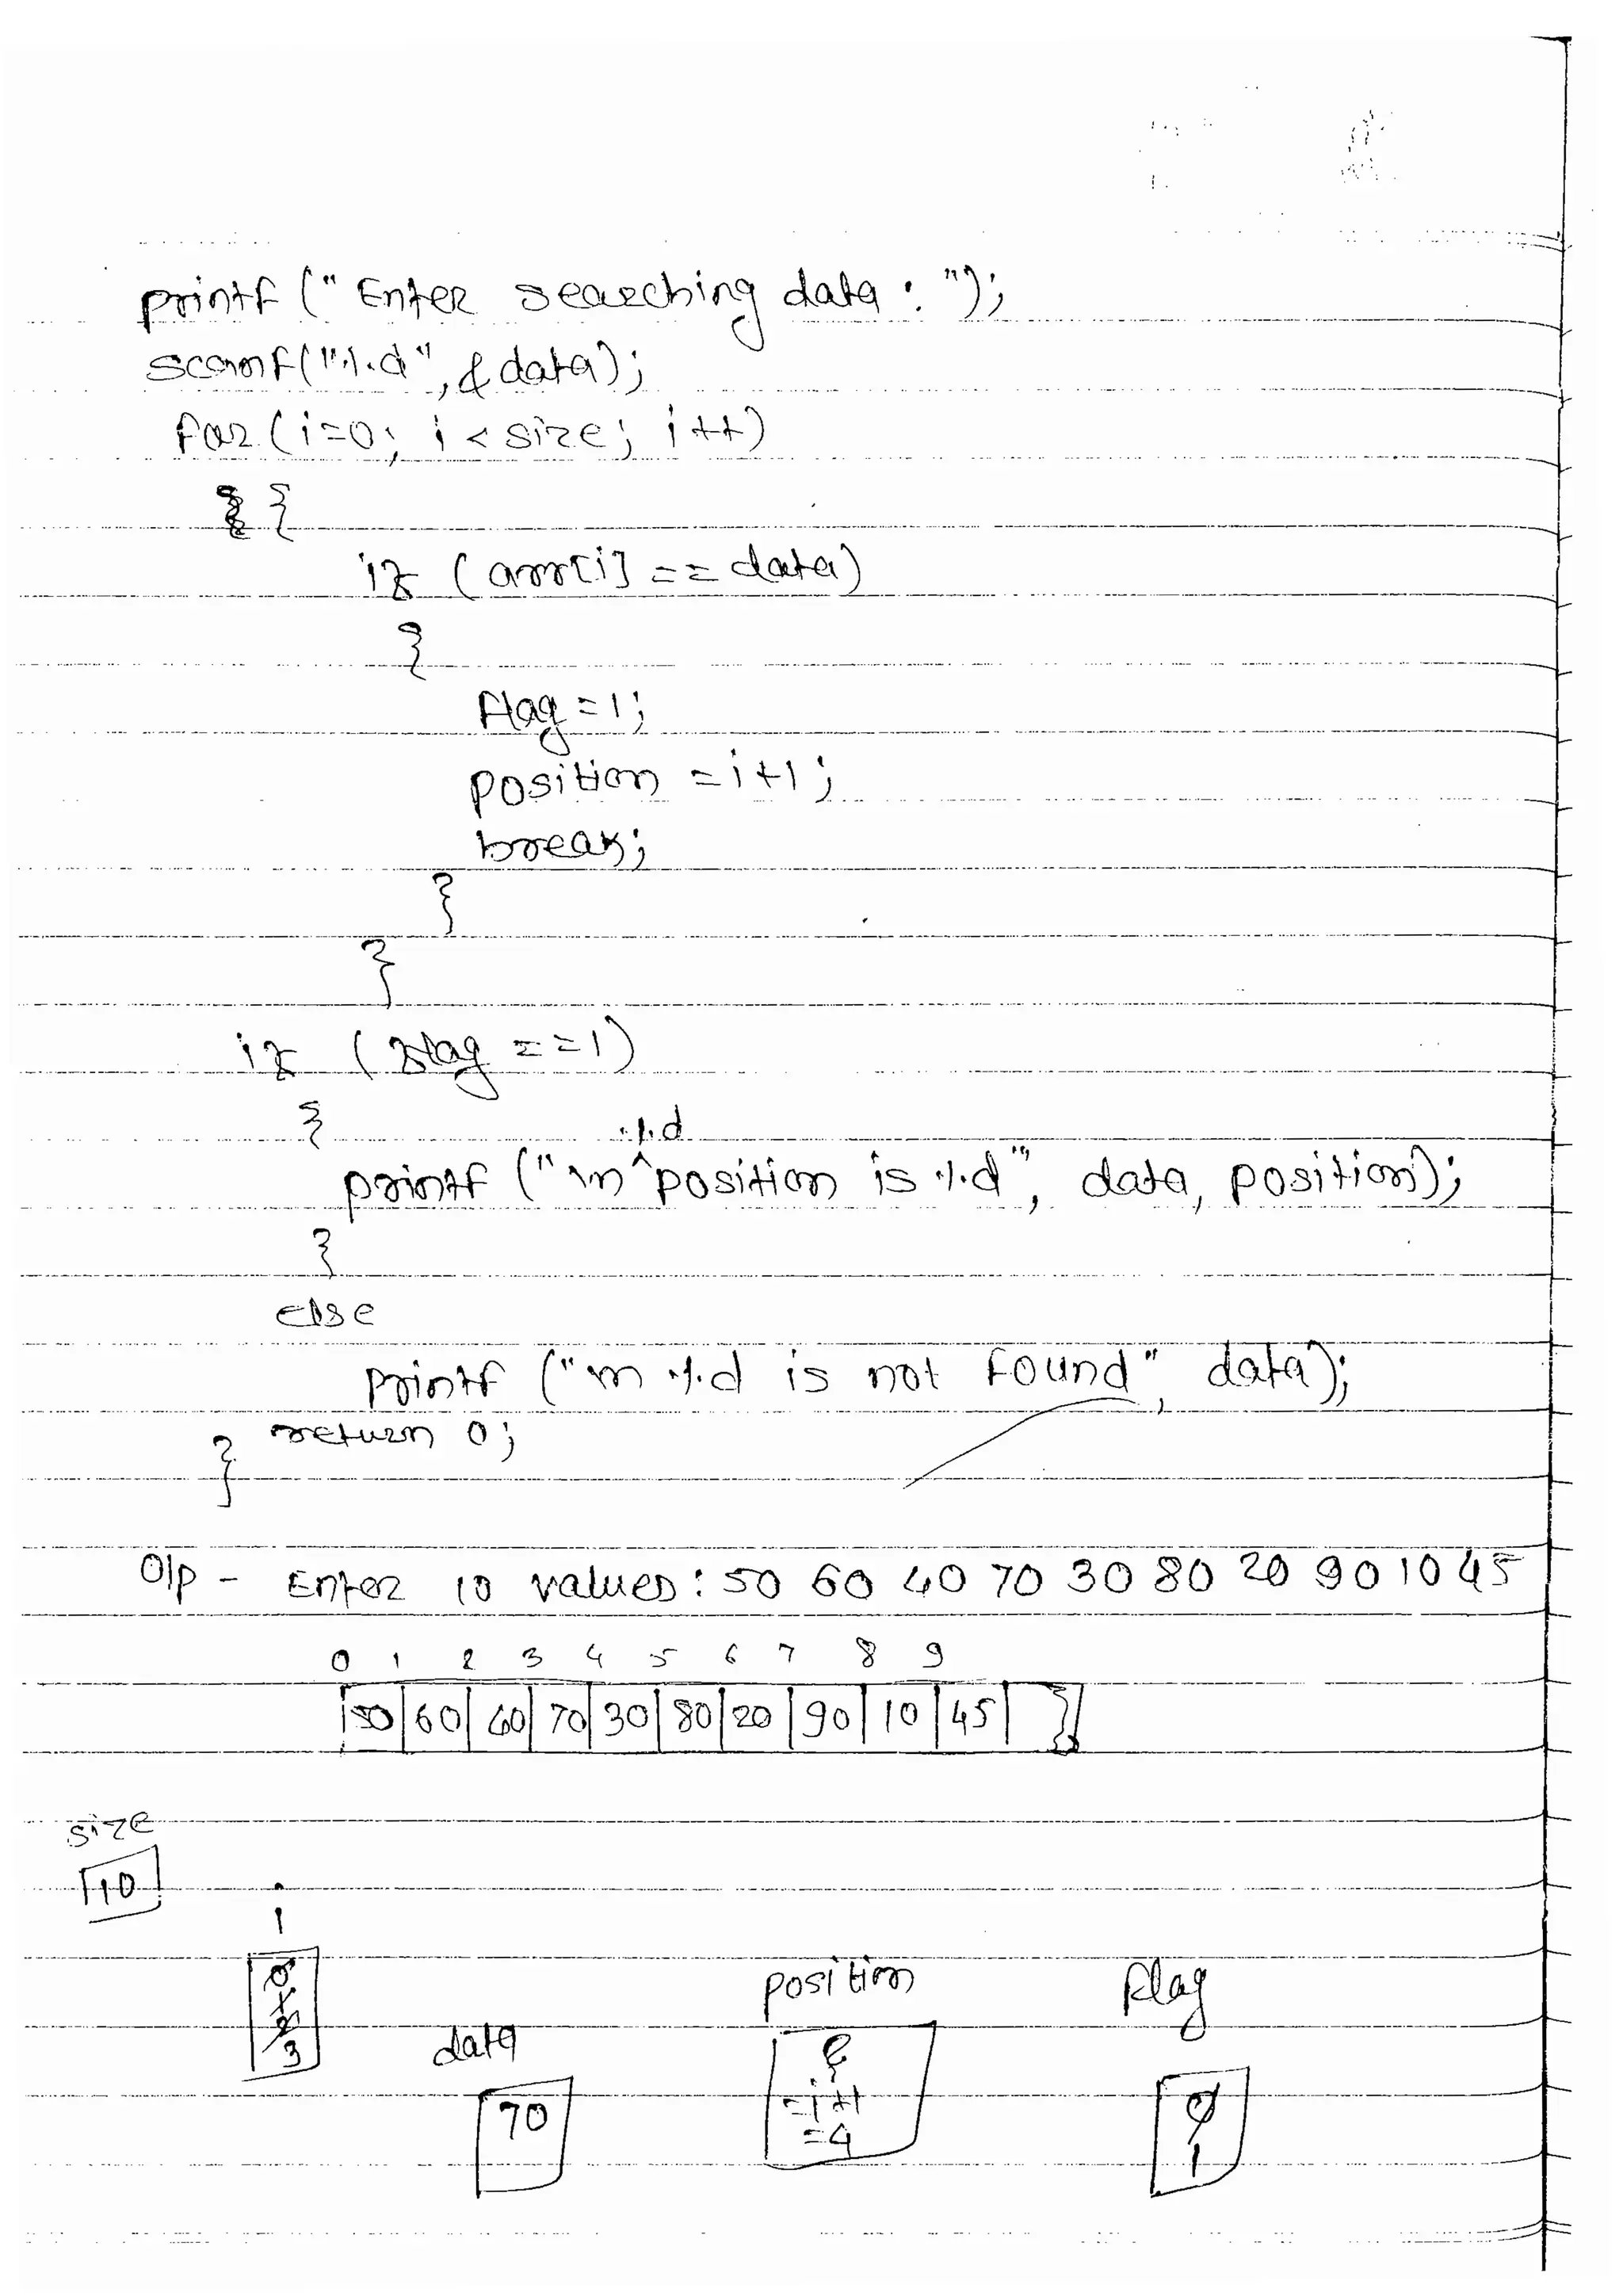 printf (" Enter searching data : ");
scanf("%d", &data);
for (i=0; i < size; i++)
{
if (arr[i] == data)
{
flag = 1;
position = i+1;
break;
}
}
if (flag == 1)
{
%d
printf ("\n ^ position is %d", data, position);
}
else
printf ("\n %d is not found", data);
return 0;
}
O/p - Enter 10 values : 50 60 40 70 30 80 20 90 10 45
0 1 2 3 4 5 6 7 8 9
50 60 40 70 30 80 20 90 10 45
size
10
i
0
1
2
3
data
70
position
=i+1
=4
flag
0
1